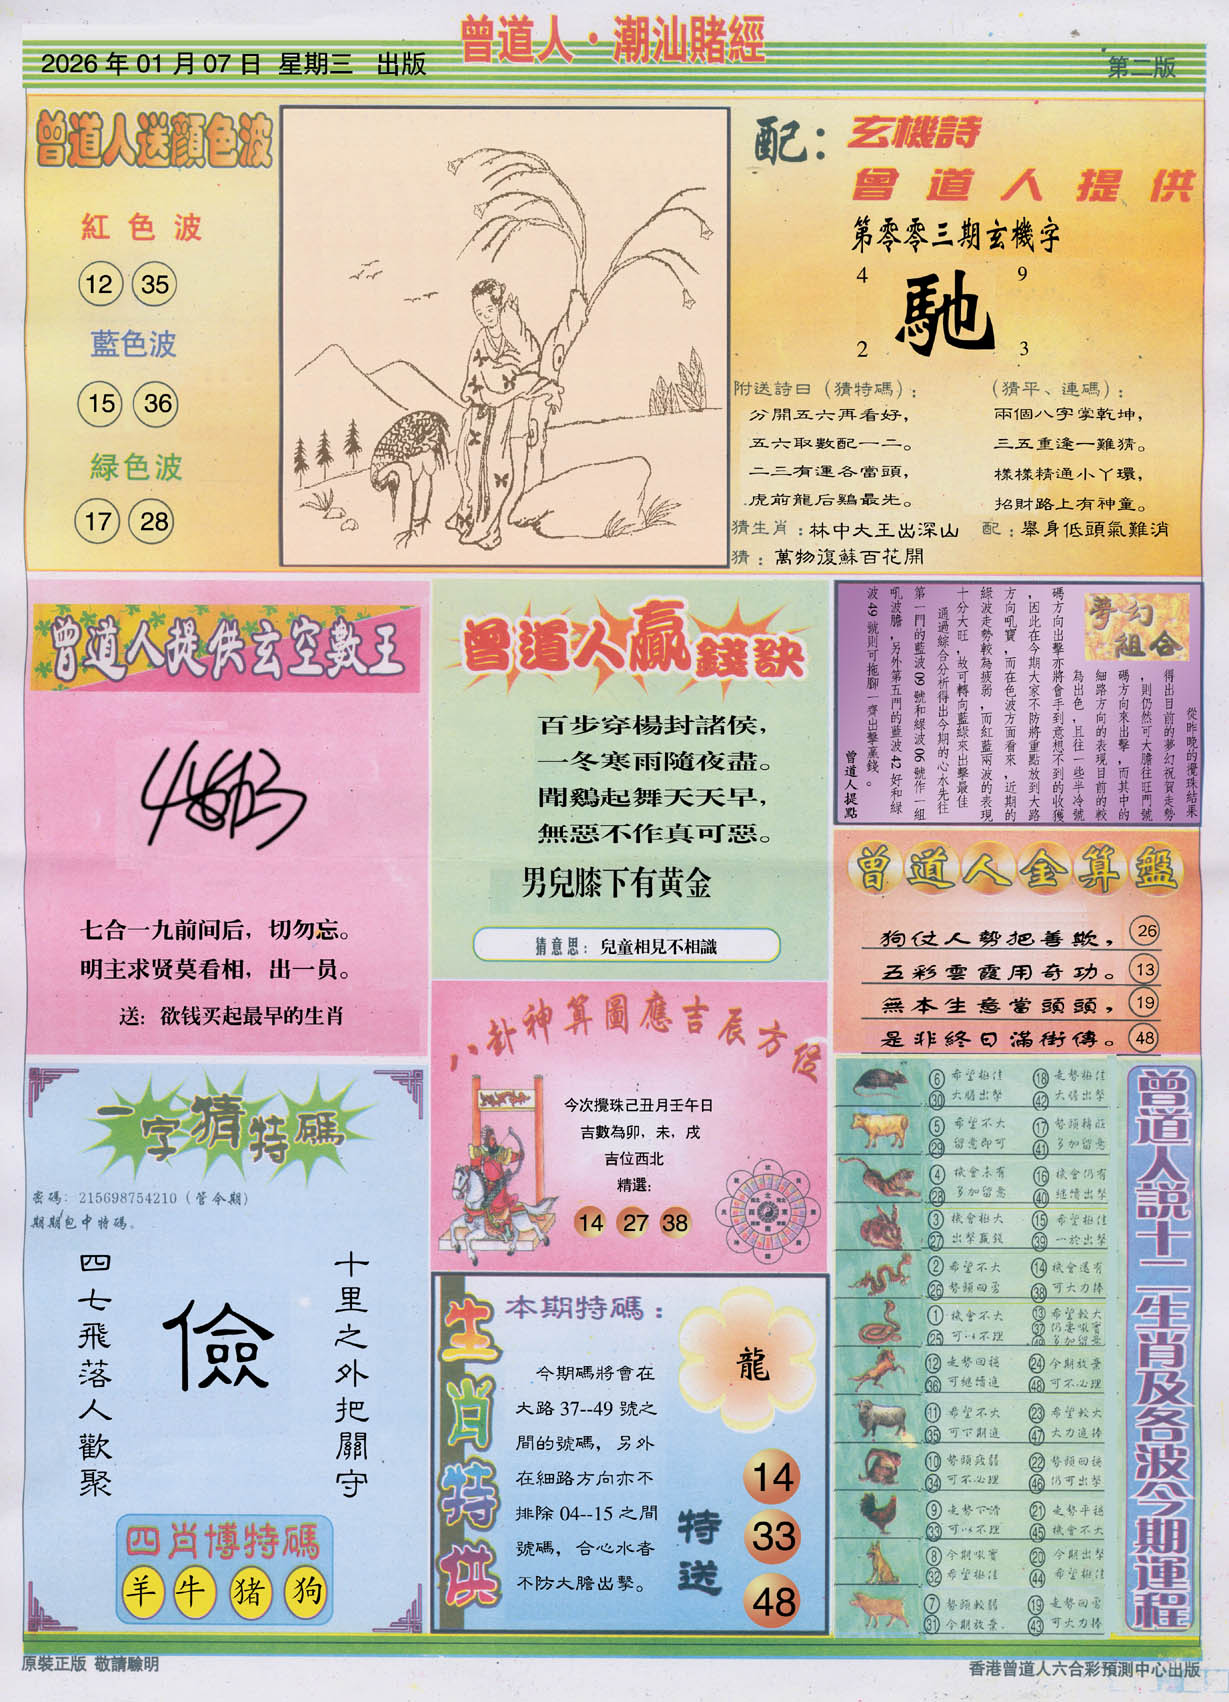 曾道人·潮汕賭經
2026 年 01 月 07 日 星期三 出版
第二版
曾道人送顏色波
紅色波
12 35
藍色波
15 36
緑色波
17 28
配：玄機詩
曾道人提供
第零零三期玄機字
4 9
馳
2 3
附送詩曰（猜特碼）：
分開五六再看好，
五六取數配一二。
二三有運各當頭，
虎前龍后鷄最先。
（猜平、連碼）：
兩個八字掌乾坤，
三五重逢一難猜。
樣樣精通小丫環，
招財路上有神童。
猜生肖：林中大王出深山
配：舉身低頭氣難消
猜：萬物復蘇百花開
曾道人提供玄空數王
七合一九前间后，切勿忘。
明主求贤莫看相，出一员。
送：欲钱买起最早的生肖
曾道人贏錢訣
百步穿楊封諸侯，
一冬寒雨隨夜盡。
聞鷄起舞天天早，
無惡不作真可惡。
男兒膝下有黃金
猜意思：兒童相見不相識
夢幻組合
從昨晚的攪珠結果
得出目前的夢幻祝賀走勢
，則仍然可大膽往旺門號
碼方向來出擊，而其中的
細路方向的表現目前的較
為出色，且往一些半冷號
碼方向出擊亦將會手到意想不到的收獲
，因此在今期大家不防將重點放到大路
方向吼寶，而在色波方面看來，近期的
綠波走勢較為疲弱，而紅藍兩波的表現
十分大旺，故可轉向藍綠來出擊最佳
通過綜合分析得出今期的心水先往
第一門的藍波 09 號和綠波 06 號作一組
吼波膽，另外第五門的藍波 42 好和綠
波 49 號則可拖腳一齊出擊贏錢。
曾道人提點
曾道人金算盤
狗仗人勢把善欺， 26
五彩雲霞用奇功。 13
無本生意當頭頭， 19
是非終日滿街傳。 48
八卦神算圖應吉辰方位
今次攪珠己丑月壬午日
吉數為卯，未，戌
吉位西北
精選：
14 27 38
一字猜特碼
密碼：215698754210（管今期）
期期包中特碼。
十里之外把關守
儉
四七飛落人歡聚
四肖博特碼
羊 牛 猪 狗
生肖特供
本期特碼：
龍
今期碼將會在
大路 37--49 號之
間的號碼，另外
在細路方向亦不
排除 04--15 之間
號碼，合心水者
不防大膽出擊。
特送
14
33
48
曾道人説十二生肖及各波今期運程
6 希望極佳 18 走勢極佳
30 大膽出擊 42 大膽出擊
5 希望不大 17 勢頭精旺
29 留意即可 41 多加留意
4 機會未有 16 機會仍有
28 多加留意 40 繼續出擊
3 機會極大 15 希望極佳
27 出擊贏錢 39 一於出擊
2 希望不大 14 機會還有
26 勢頭回勇 38 可大力捧
1 機會不大 13 希望較大
37 仍要吼寶
25 可以不理 49 多加留意
12 走勢回穩 24 今期放棄
36 可繼續進 48 可不必理
11 希望不大 23 希望較大
35 可下期追 47 大力追捧
10 勢頭疲弱 22 勢頭回穩
34 可不必理 46 仍可出擊
9 走勢下滑 21 走勢平穩
33 可以不理 45 機會不大
8 今期吼寶 20 今期出擊
32 希望極佳 44 希望極佳
7 勢頭較弱 19 走勢回勇
31 今期放棄. 43 可大力捧
原裝正版 敬請驗明
香港曾道人六合彩預測中心出版